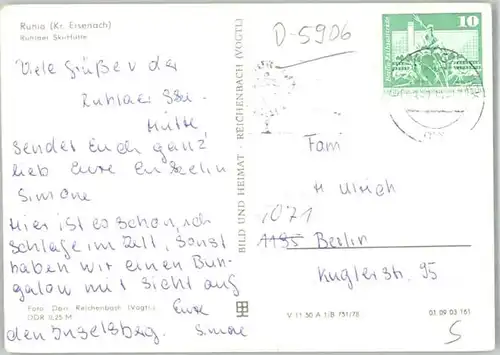 Ruhla (Kr. Eisenach)
Ruhlaer Skihütte
D-5906
10
Viele Grüße von der
Ruhlaer Ski-
Hütte
sendet Euch ganz
lieb Eure Enkelin
Simone
Hier ist es schön, ich
schlafe im Zelt, sonst
haben wir einen Bun-
galow mit Sicht auf
den Inselsberg. Eure
Simone
Foto: Darr, Reichenbach (Vogtl.)
DDR 0,25 M
BILD UND HEIMAT · REICHENBACH (VOGTL)
Fam
H Ulrich
1071
1195 Berlin
Kuglerstr. 95
V 11 50 A 1/B 751/76
01 09 03 161
5